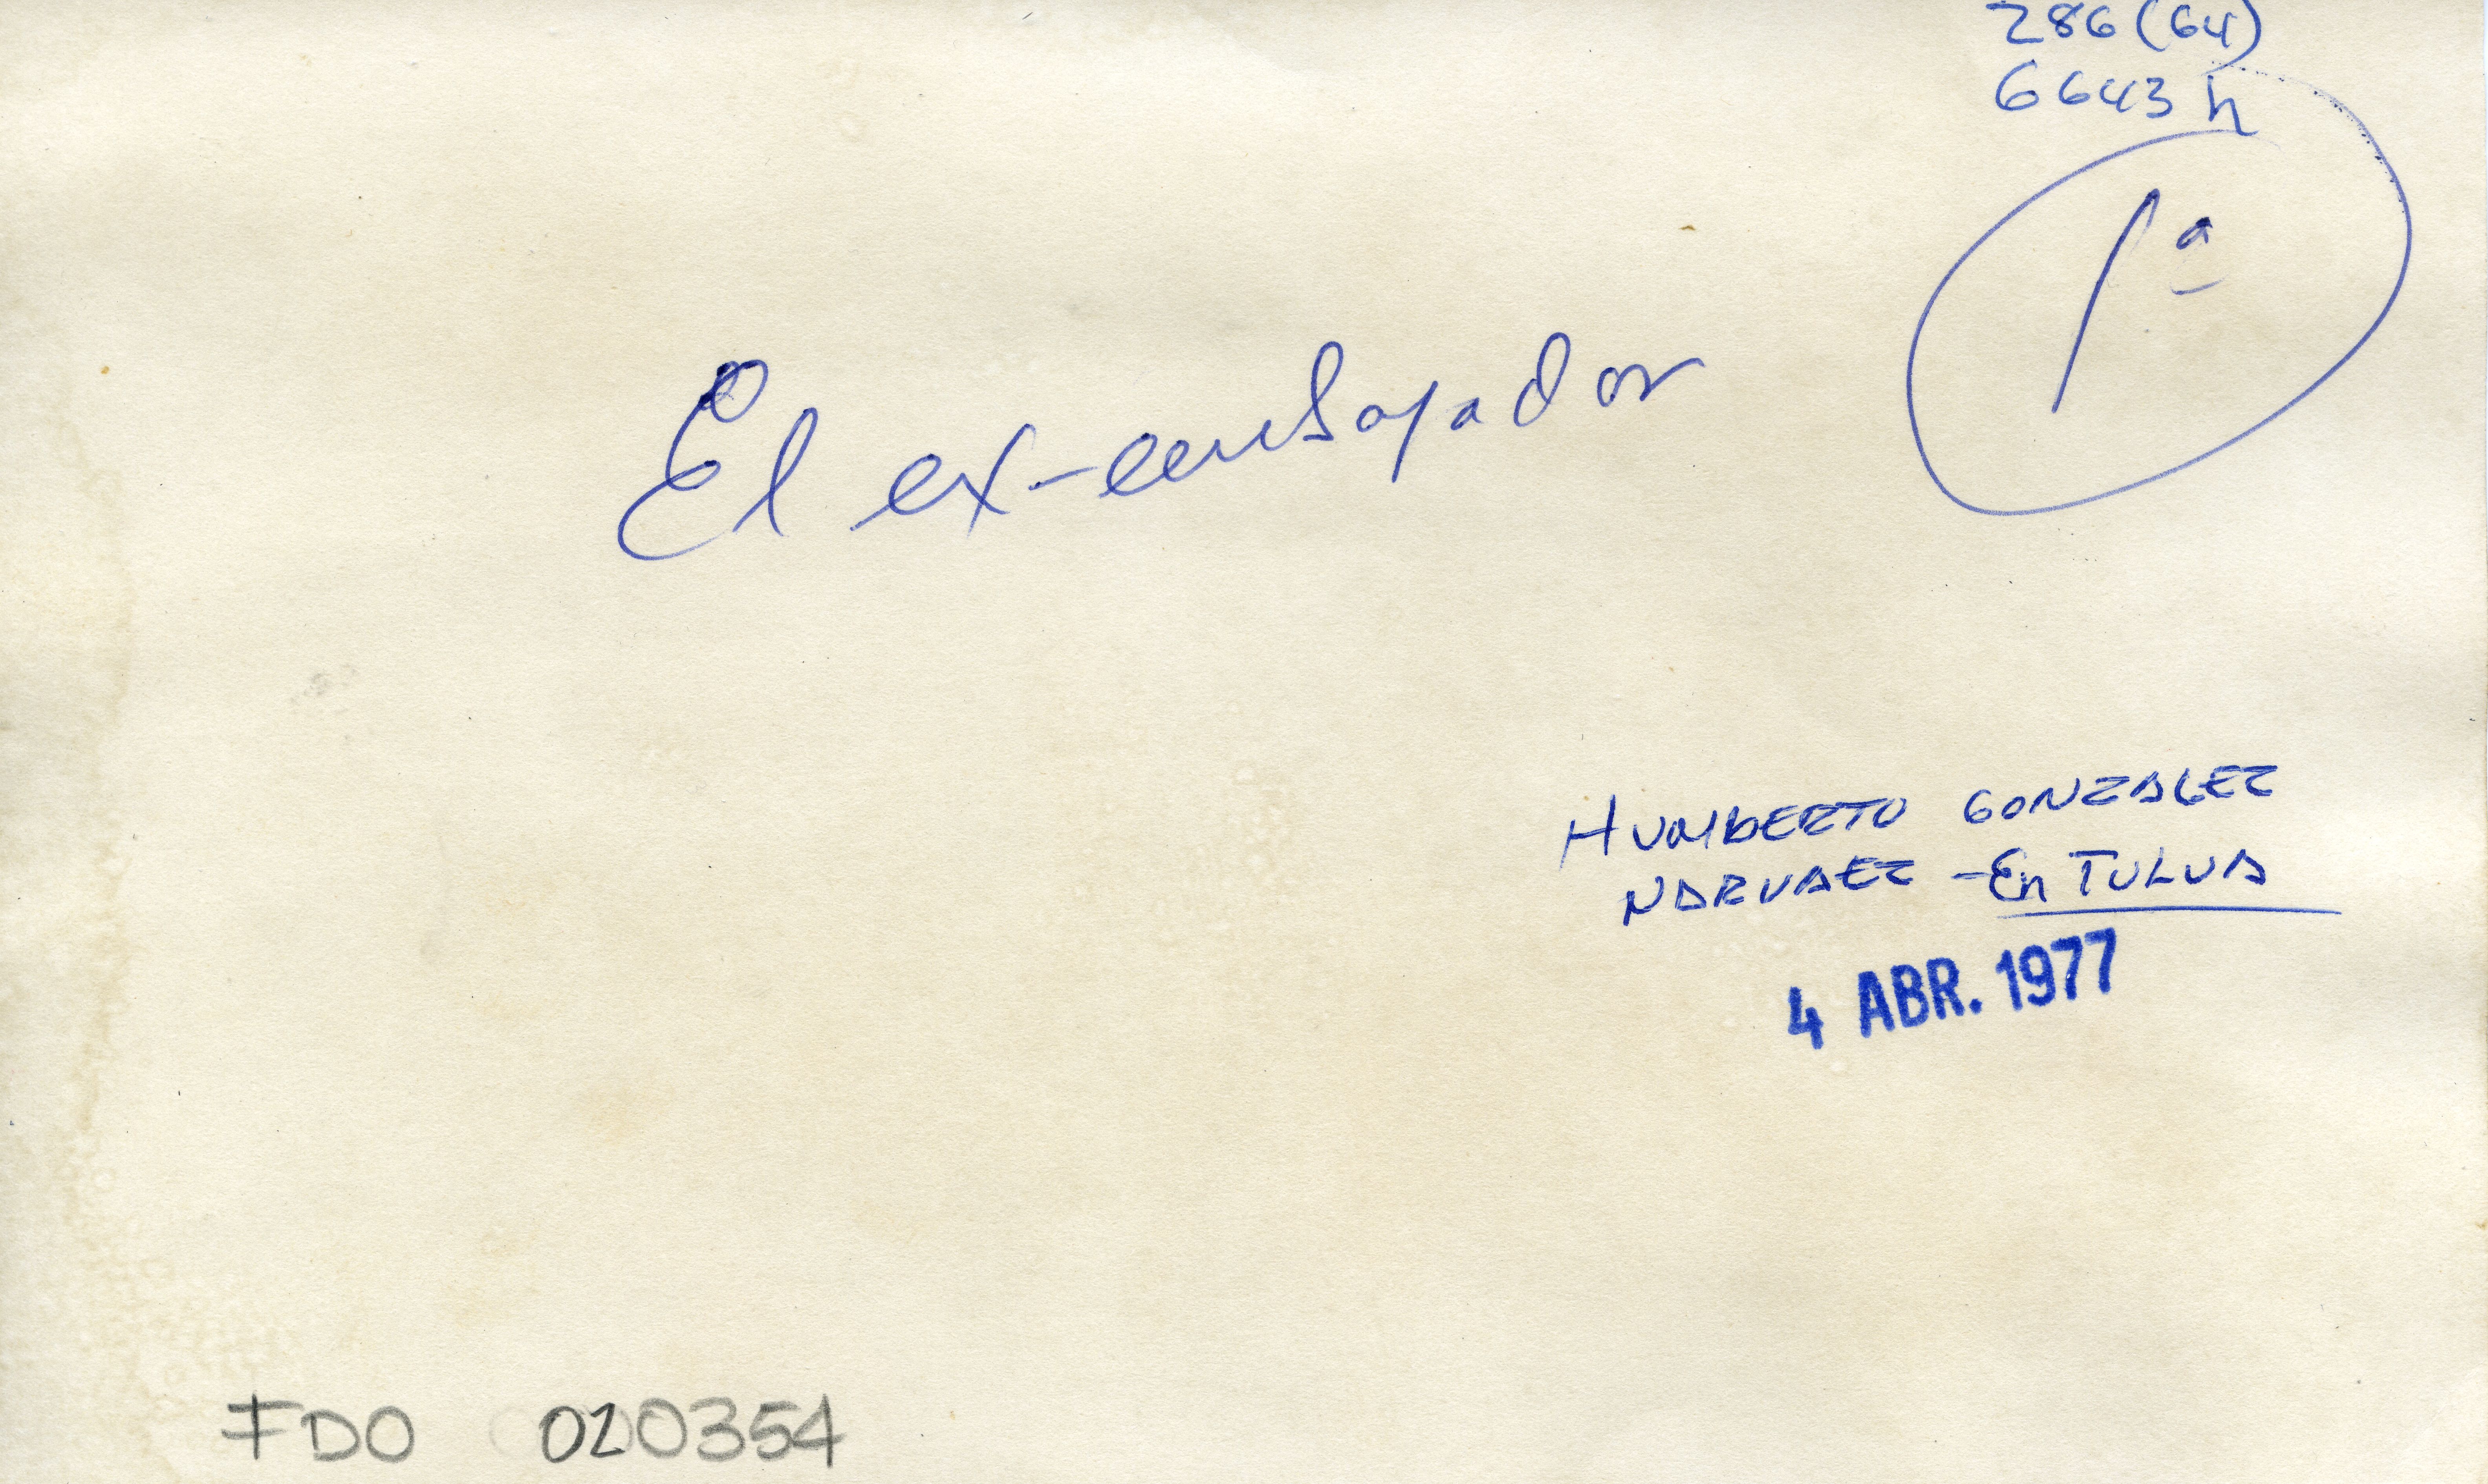 286 (64)
6643 h
1ª
El ex-embajador
HUMBERTO GONZALEZ
NARVAEZ - En TULUA
4 ABR. 1977
FDO 020354